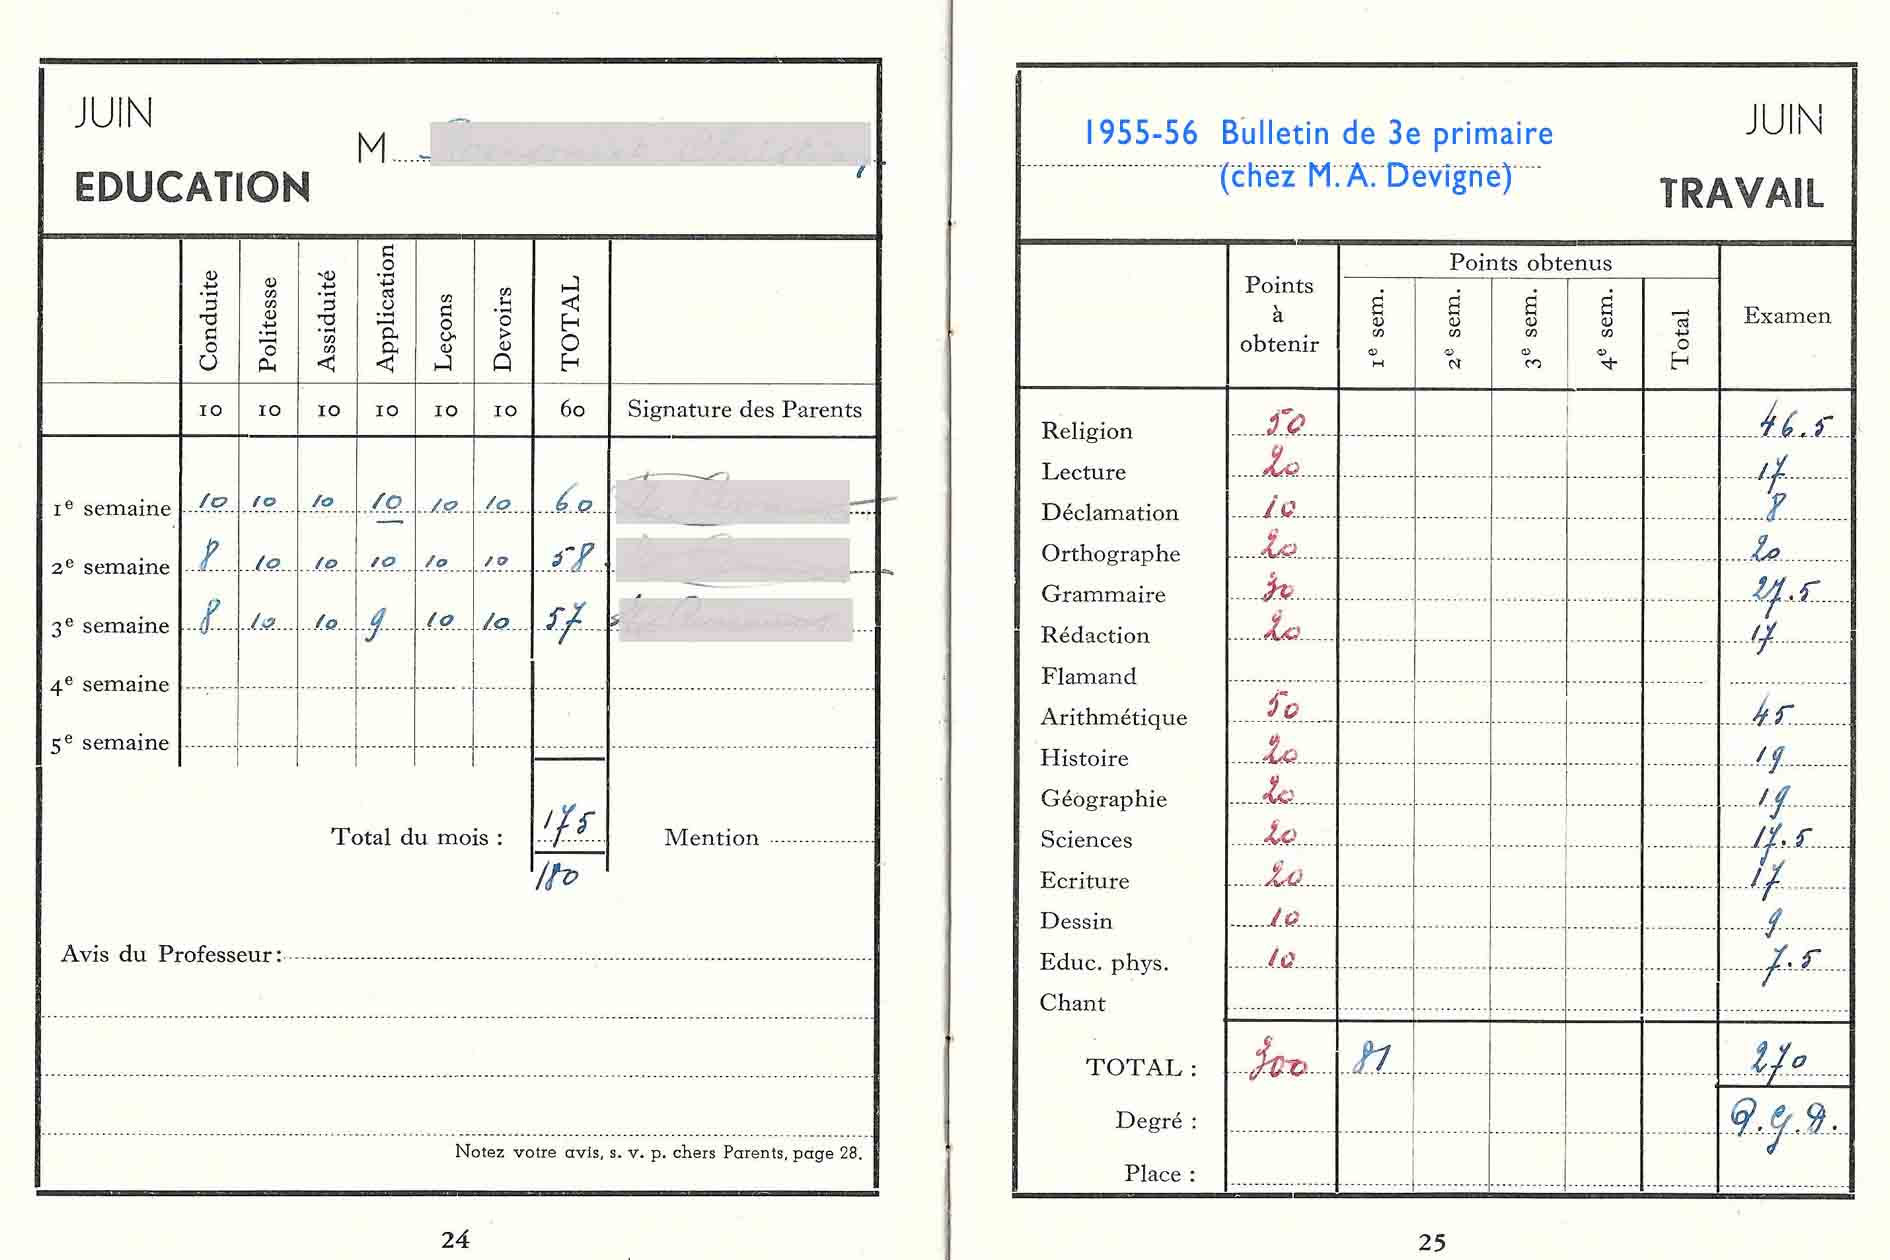 JUIN
M
EDUCATION
Conduite Politesse Assiduité Application Leçons Devoirs TOTAL
10 10 10 10 10 10 60 Signature des Parents
1e semaine 10 10 10 10 10 10 60
2e semaine 8 10 10 10 10 10 58
3e semaine 8 10 10 9 10 10 57
4e semaine
5e semaine
Total du mois : 175 Mention
180
Avis du Professeur :
Notez votre avis, s. v. p. chers Parents, page 28.
24
1955-56 Bulletin de 3e primaire
(chez M. A. Devigne)
JUIN
TRAVAIL
Points à obtenir Points obtenus Examen
1e sem. 2e sem. 3e sem. 4e sem. Total
Religion 50 46.5
Lecture 20 17
Déclamation 10 8
Orthographe 20 20
Grammaire 30 27.5
Rédaction 20 17
Flamand
Arithmétique 50 45
Histoire 20 19
Géographie 20 19
Sciences 20 17.5
Ecriture 20 17
Dessin 10 9
Educ. phys. 10 7.5
Chant
TOTAL : 300 81 270
Degré : P.G.D.
Place :
25